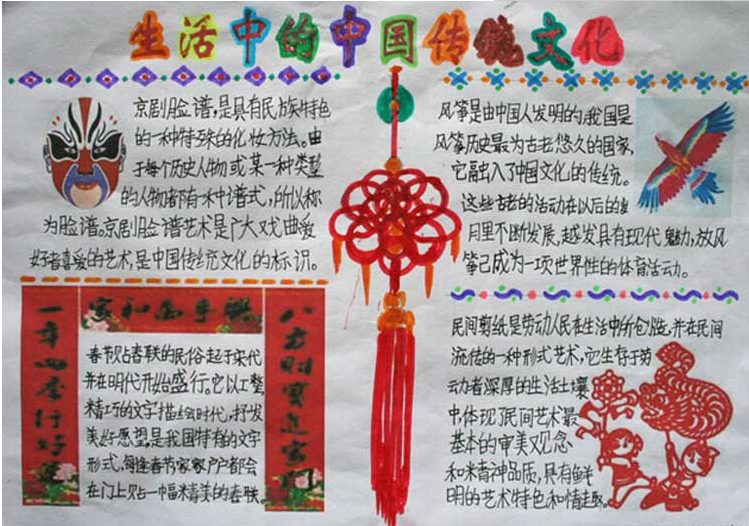 生活中的中国传统文化
京剧脸谱,是具有民族特色
的一种特殊的化妆方法。由
于每个历史人物或某一种类型
的人物都有一种谱式,所以称
为脸谱。京剧脸谱艺术是广大戏曲爱
好者喜爱的艺术,是中国传统文化的标识。
风筝是由中国人发明的,我国是
风筝历史最为古老悠久的国家,
它融出入了中国文化的传统。
这些古老的活动在以后的岁
月里不断发展,越发具有现代魅力,放风
筝已成为一项世界性的体育活动。
家和万事兴
一年四季行好运
八方财宝进家门
春节贴春联的民俗起于宋代
并在明代开始盛行。它以工整
精巧的文字描绘时代,抒发
美好愿望,是我国特有的文字
形式,每逢春节家家户户都会
在门上贴一幅精美的春联。
民间剪纸是劳动人民在生活中所创造,并在民间
流传的一种形式艺术,它生存于劳
动者深厚的生活土壤
中,体现了民间艺术最
基本的审美观念
和精神品质,具有鲜
明的艺术特色和情趣。